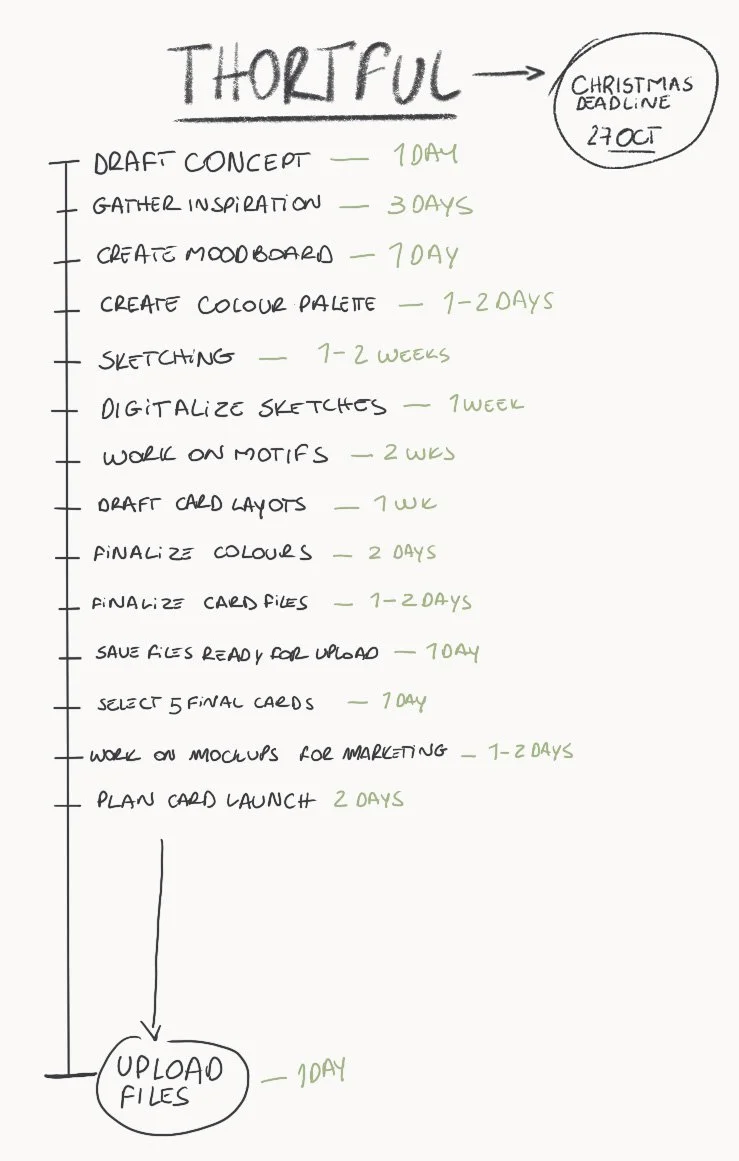 THORTFUL
CHRISTMAS
DEADLINE
27 OCT
DRAFT CONCEPT — 1 DAY
GATHER INSPIRATION — 3 DAYS
CREATE MOODBOARD — 1 DAY
CREATE COLOUR PALETTE — 1-2 DAYS
SKETCHING — 1-2 WEEKS
DIGITALIZE SKETCHES — 1 WEEK
WORK ON MOTIFS — 2 WKS
DRAFT CARD LAYOTS — 1 WK
FINALIZE COLOURS — 2 DAYS
FINALIZE CARD FILES — 1-2 DAYS
SAVE FILES READY FOR UPLOAD — 1 DAY
SELECT 5 FINAL CARDS — 1 DAY
WORK ON MOCKUPS FOR MARKETING — 1-2 DAYS
PLAN CARD LAUNCH 2 DAYS
UPLOAD
FILES — 1 DAY